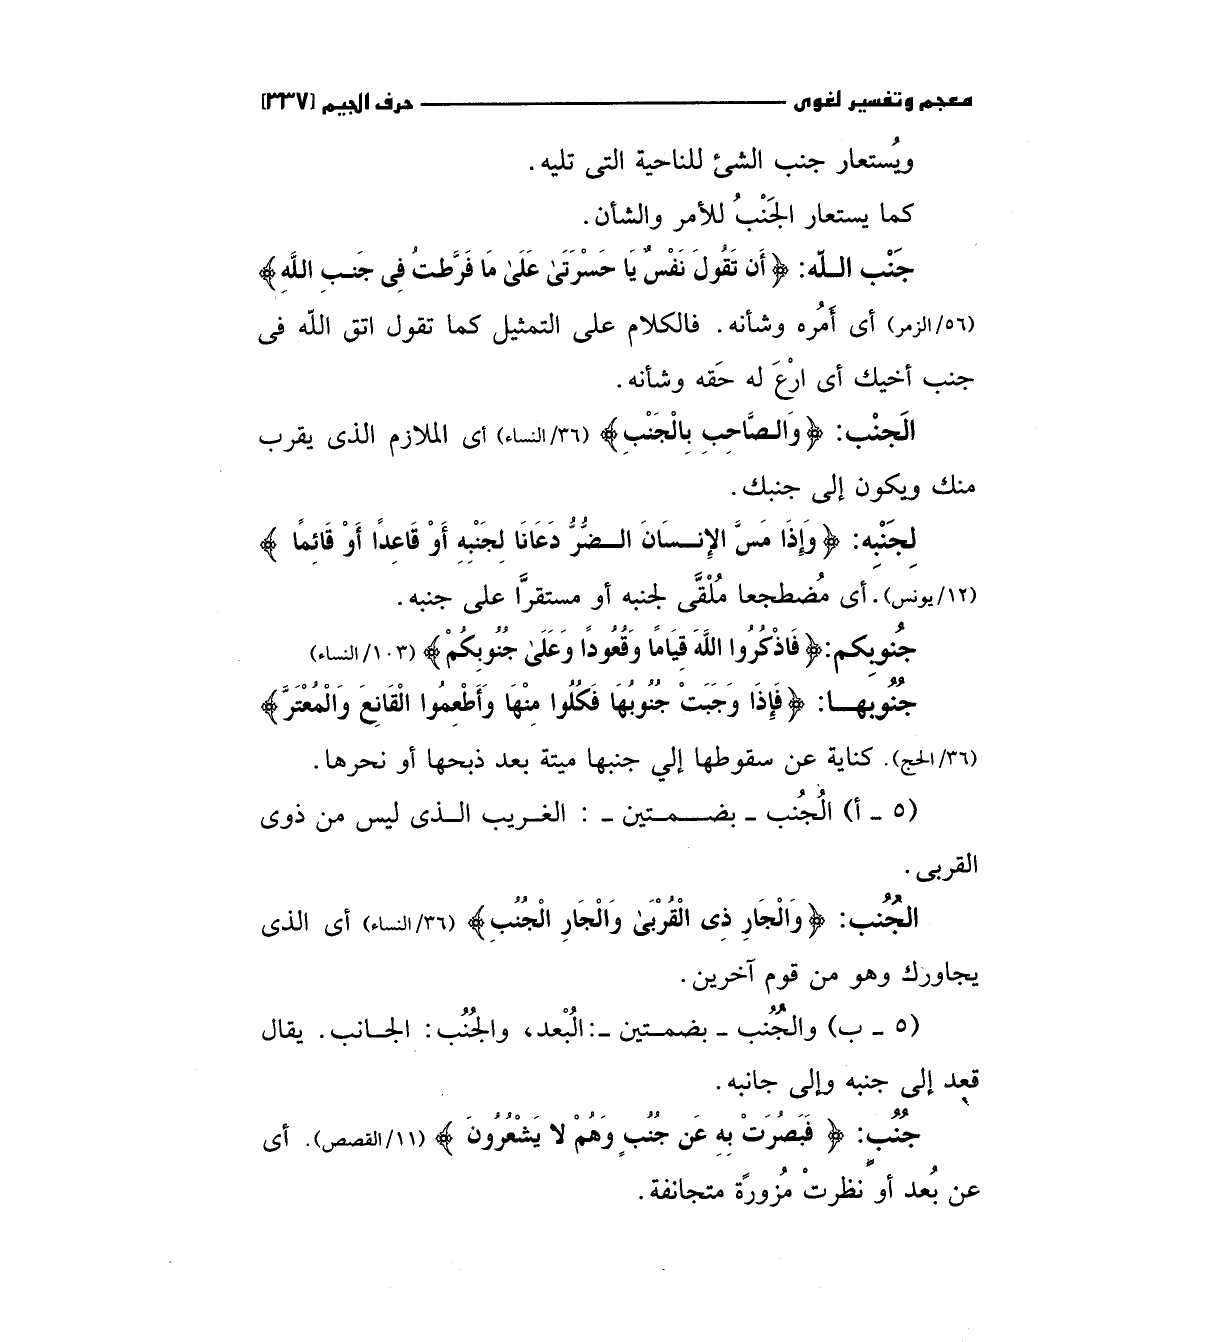 معجم وتفسير لغوى ـــــــ حرف الجيم [٣٣٧]
ويُستعار جنب الشئ للناحية التى تليه.
كما يستعار الجَنْبُ للأمر والشأن.
جَنْب اللّه: ﴿أَن تَقُولَ نَفْسٌ يَا حَسْرَتَىٰ عَلَىٰ مَا فَرَّطتُ فِى جَنبِ اللَّهِ﴾
(٥٦/الزمر) أى أَمْره وشأنه. فالكلام على التمثيل كما تقول اتق اللّه فى
جنب أخيك أى ارْعَ له حَقه وشأنه.
الَجنْب: ﴿وَالصَّاحِبِ بِالْجَنْبِ﴾ (٣٦/النساء) أى الملازم الذى يقرب
منك ويكون إلى جنبك.
لِجَنْبِه: ﴿وَإِذَا مَسَّ الإِنسَانَ الضُّرُّ دَعَانَا لِجَنْبِهِ أَوْ قَاعِدًا أَوْ قَائِمًا﴾
(١٢/يونس). أى مُضطجعا مُلْقًى لجنبه أو مستقرًّا على جنبه.
جُنوبِكم: ﴿فَاذْكُرُوا اللَّهَ قِيَامًا وَقُعُودًا وَعَلَىٰ جُنُوبِكُمْ﴾ (١٠٣/النساء)
جنُوُبها: ﴿فَإِذَا وَجَبَتْ جُنُوبُهَا فَكُلُوا مِنْهَا وَأَطْعِمُوا الْقَانِعَ وَالْمُعْتَرَّ﴾
(٣٦/الحج). كناية عن سقوطها إلي جنبها ميتة بعد ذبحها أو نحرها.
(٥ ـ أ) الُجُنب ـ بضمتين ـ : الغريب الذى ليس من ذوى
القربى.
الجُنُب: ﴿وَالْجَارِ ذِى الْقُرْبَىٰ وَالْجَارِ الْجُنُبِ﴾ (٣٦/النساء) أى الذى
يجاورك وهو من قوم آخرين.
(٥ ـ ب) والجُنُب ـ بضمتين ـ: الُبْعد، والجُنُب: الجانب. يقال
قعد إلى جنبه وإلى جانبه.
جنُبُ: ﴿فَبَصُرَتْ بِهِ عَن جُنُبٍ وَهُمْ لا يَشْعُرُونَ﴾ (١١/القصص). أى
عن بُعد أو نظرتْ مُزورةً متجانفة.